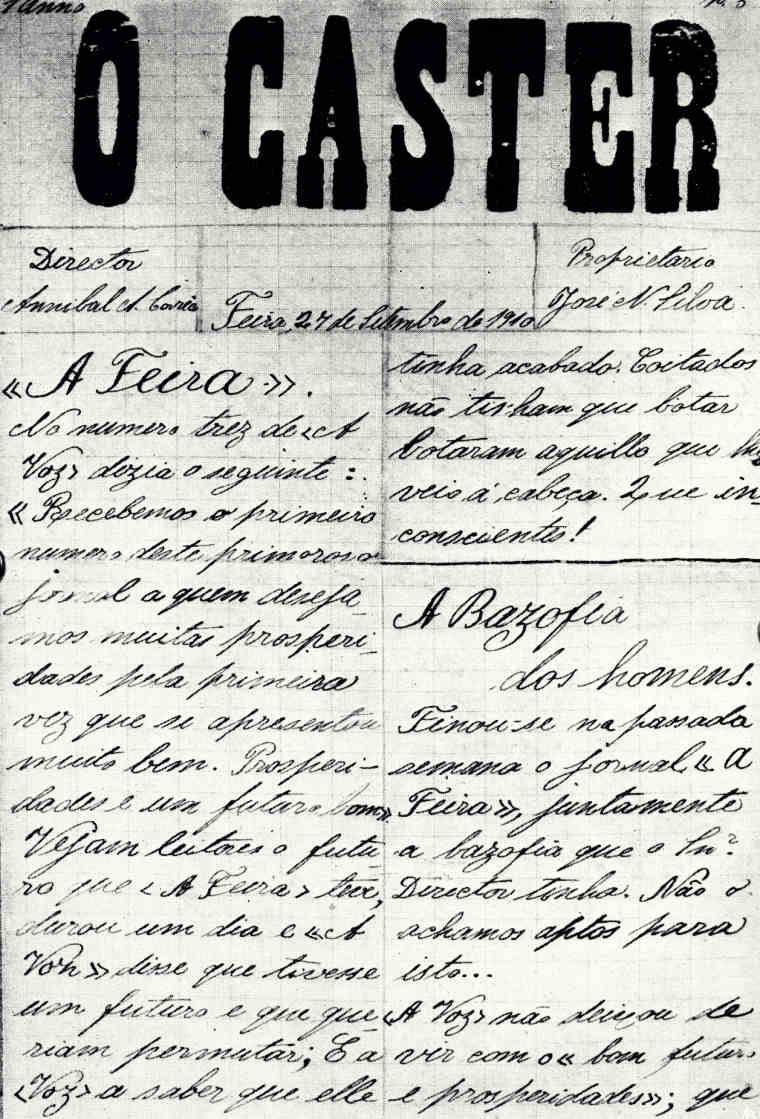 Anno
N. 3
O CASTER
Director
Annibal A. Corrêa
Feira, 27 de Setembro de 1910
Proprietario
José N. Silva.
«A Feira».
No numero trez de «A
Voz» dizia o seguinte:
«Recebemos o primeiro
numero deste primoroso
jornal a quem deseja-
mos muitas prosperi-
dades pela primeira
vez que se apresentou
muito bem. Prosperi-
dades e um futuro bom».
Vejam leitores o futu
ro que «A Feira» teve,
durou um dia e «A
Voz» disse que tivesse
um futuro e que que-
riam permutar; E a
«Voz» a saber que elle
tinha acabado. Coitados
não tinham que botar
botaram aquillo que lhe
veio á cabeça. Que in-
conscientes!
A Bazofia
dos homens.
Finou-se na passada
semana o jornal «A
Feira», juntamente
a bazofia que o Snr.
Director tinha. Não o
achamos aptos para
isto...
«A Voz» não deixou de
vir com o « bom futuro
e prosperidades»; que